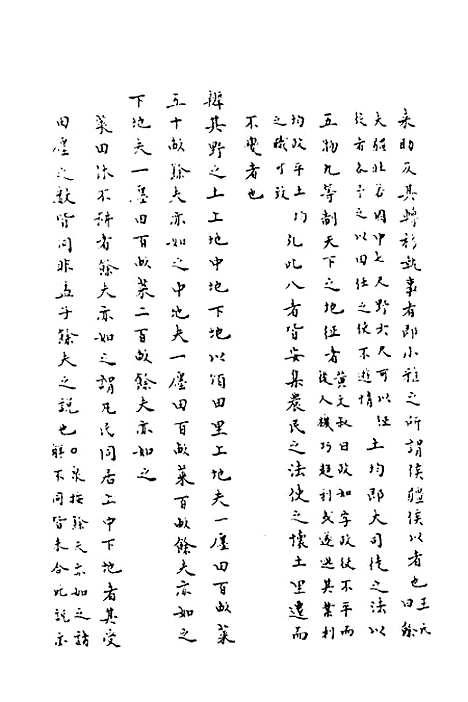 耒助及其轉移執事者即小雅之所謂侯彊侯以者也王氏曰餘
夫彊壯者因中七尺野六尺可以任
役者各予之以田任之使不遊惰土均即大司徒之法以
五物九等制天下之地征者黃文叔曰政如字政役不平而
從人機巧趨利或逐逃其業利
均政平土
之職可致均凡此八者皆安集農民之法使之懷土里遠而
不變者也
辨其野之土上地中地下地以頒田里上地夫一廛田百畝萊
五十畝餘夫亦如之中地夫一廛田百畝萊百畝餘夫亦如之
下地夫一廛田百畝萊二百畝餘夫亦如之
萊田休不耕者餘夫亦如之謂凡民同居上中下地者其受
田廛之數皆同非孟子餘夫之說也○泉按餘夫亦如之諸
解不同皆未合此說亦